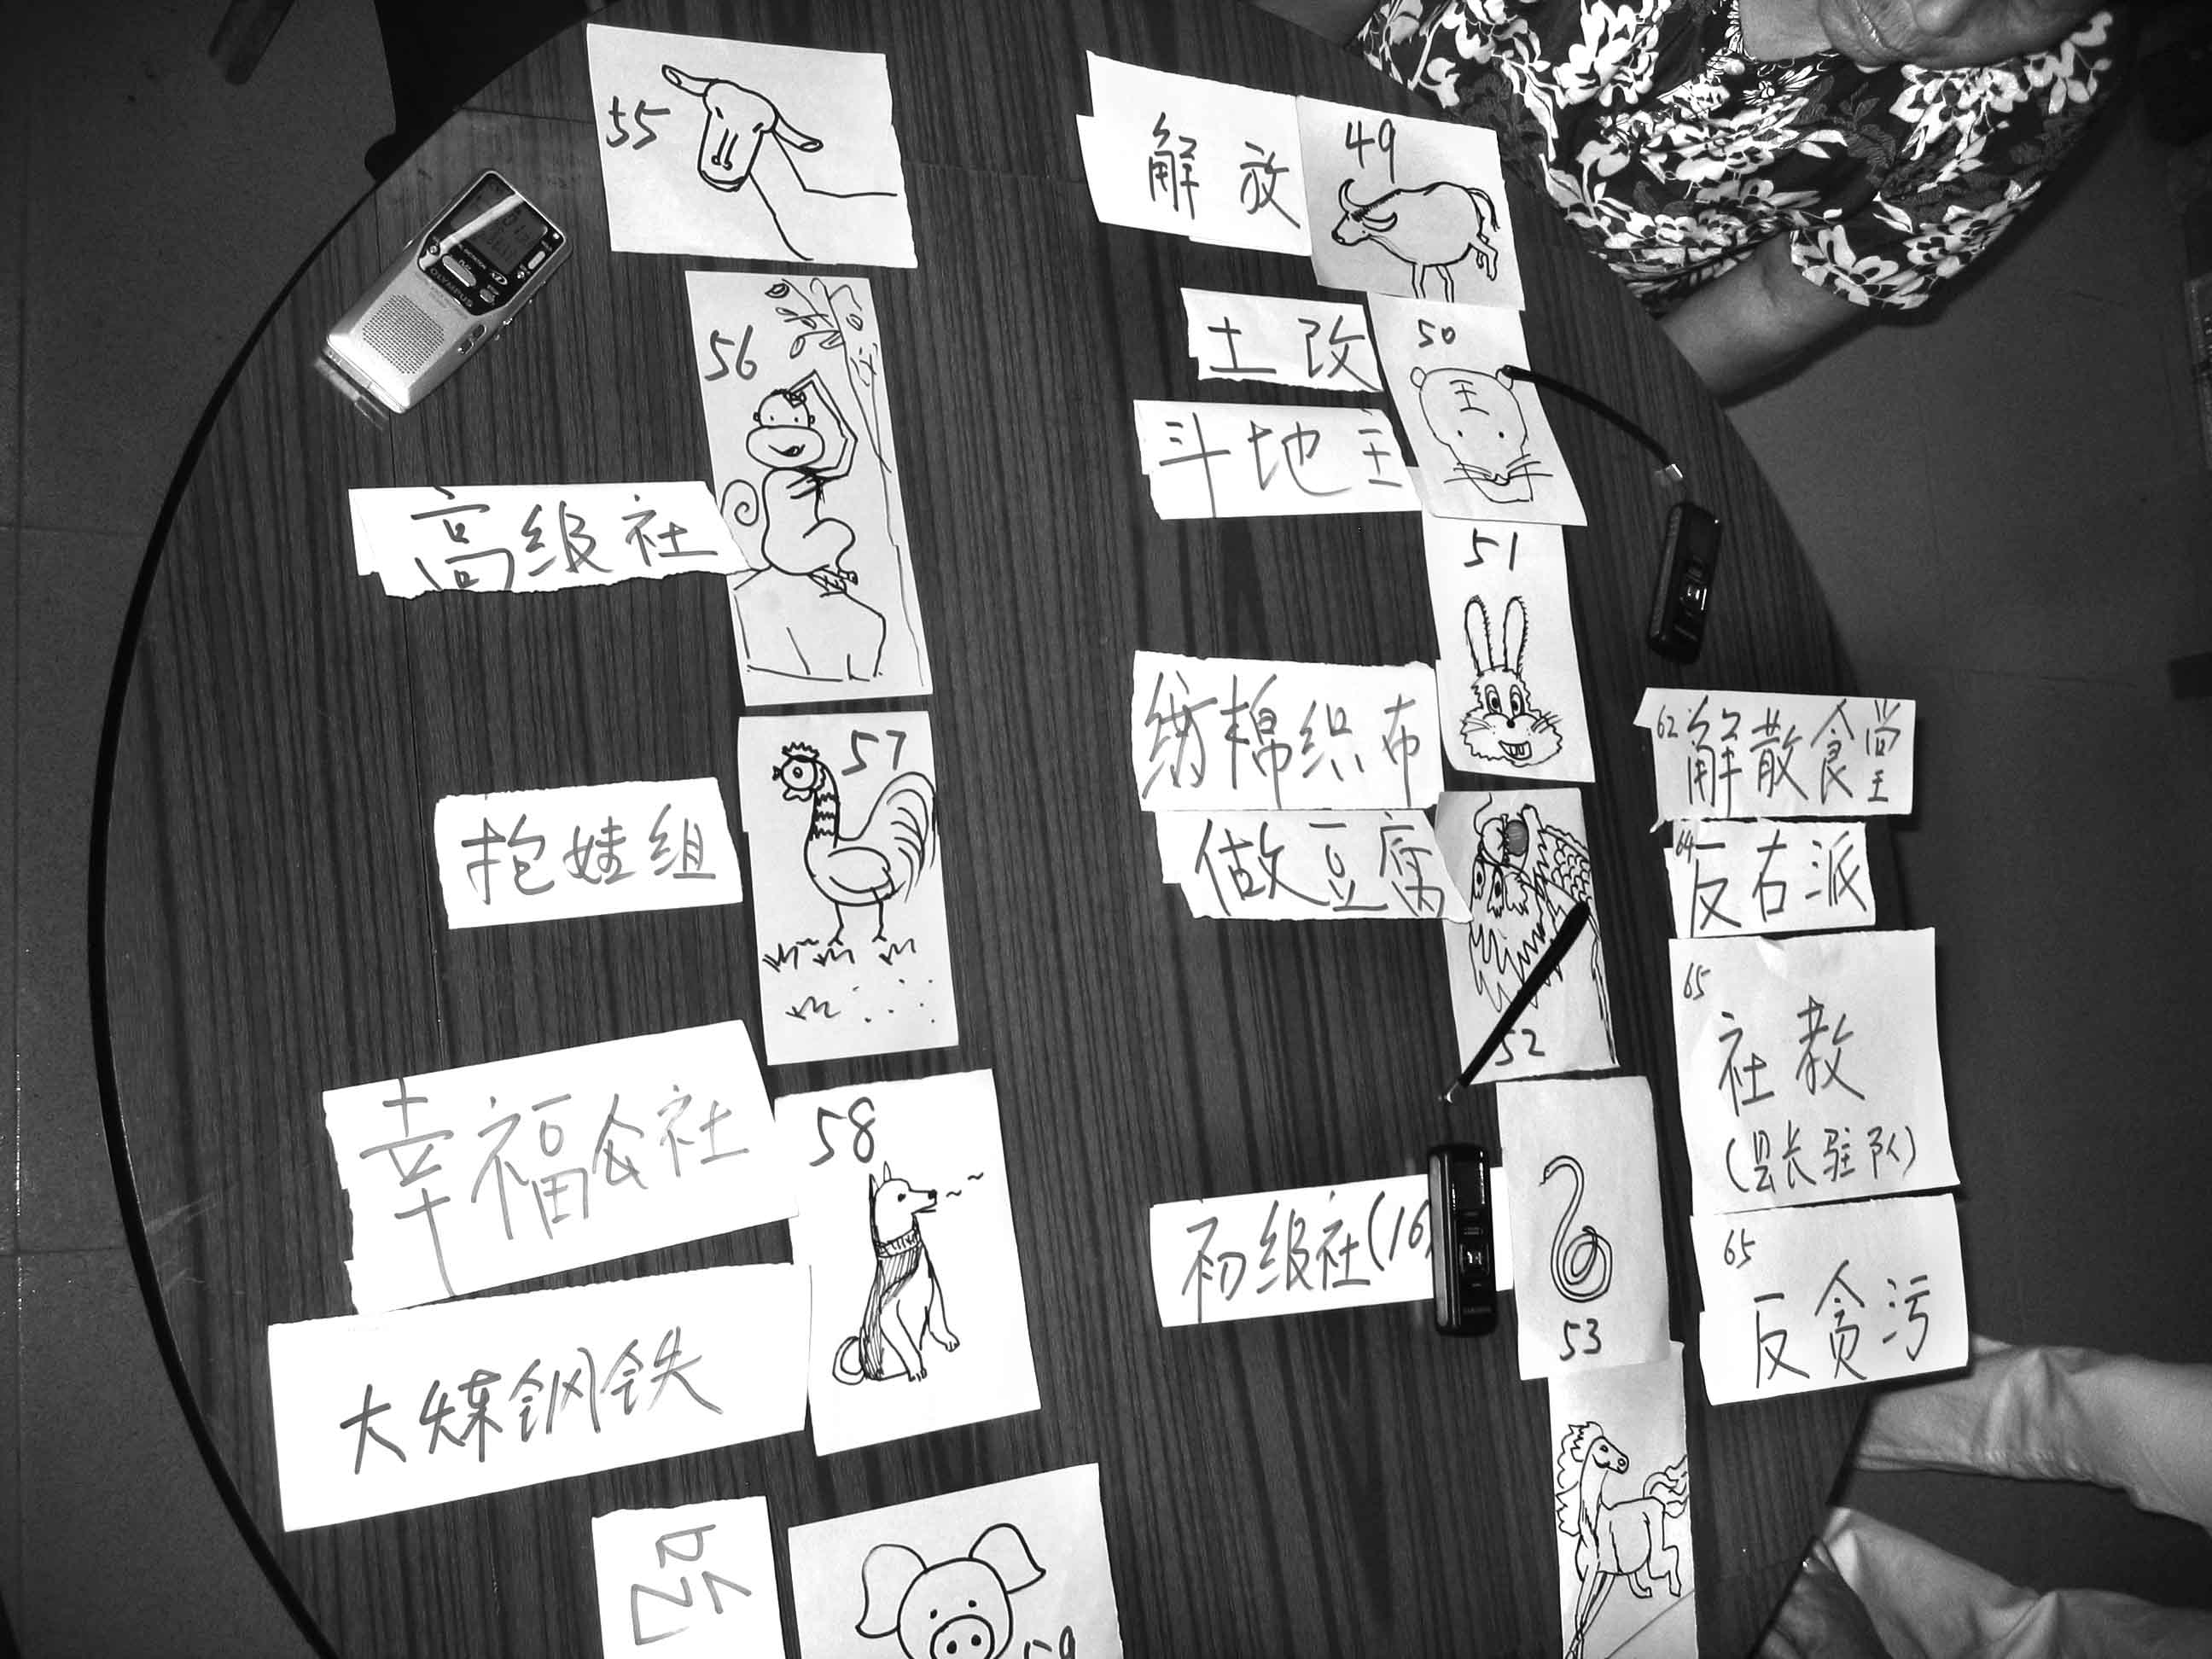 55
56
高级社
57
抱娃组
58
幸福公社
大炼钢铁
59
解放
49
土改
50
王
斗地主
51
纺棉织布
做豆腐
52
初级社(16)
53
62 解散食堂
64 反右派
65
社教
(县长驻队)
65
反贪污
OLYMPUS